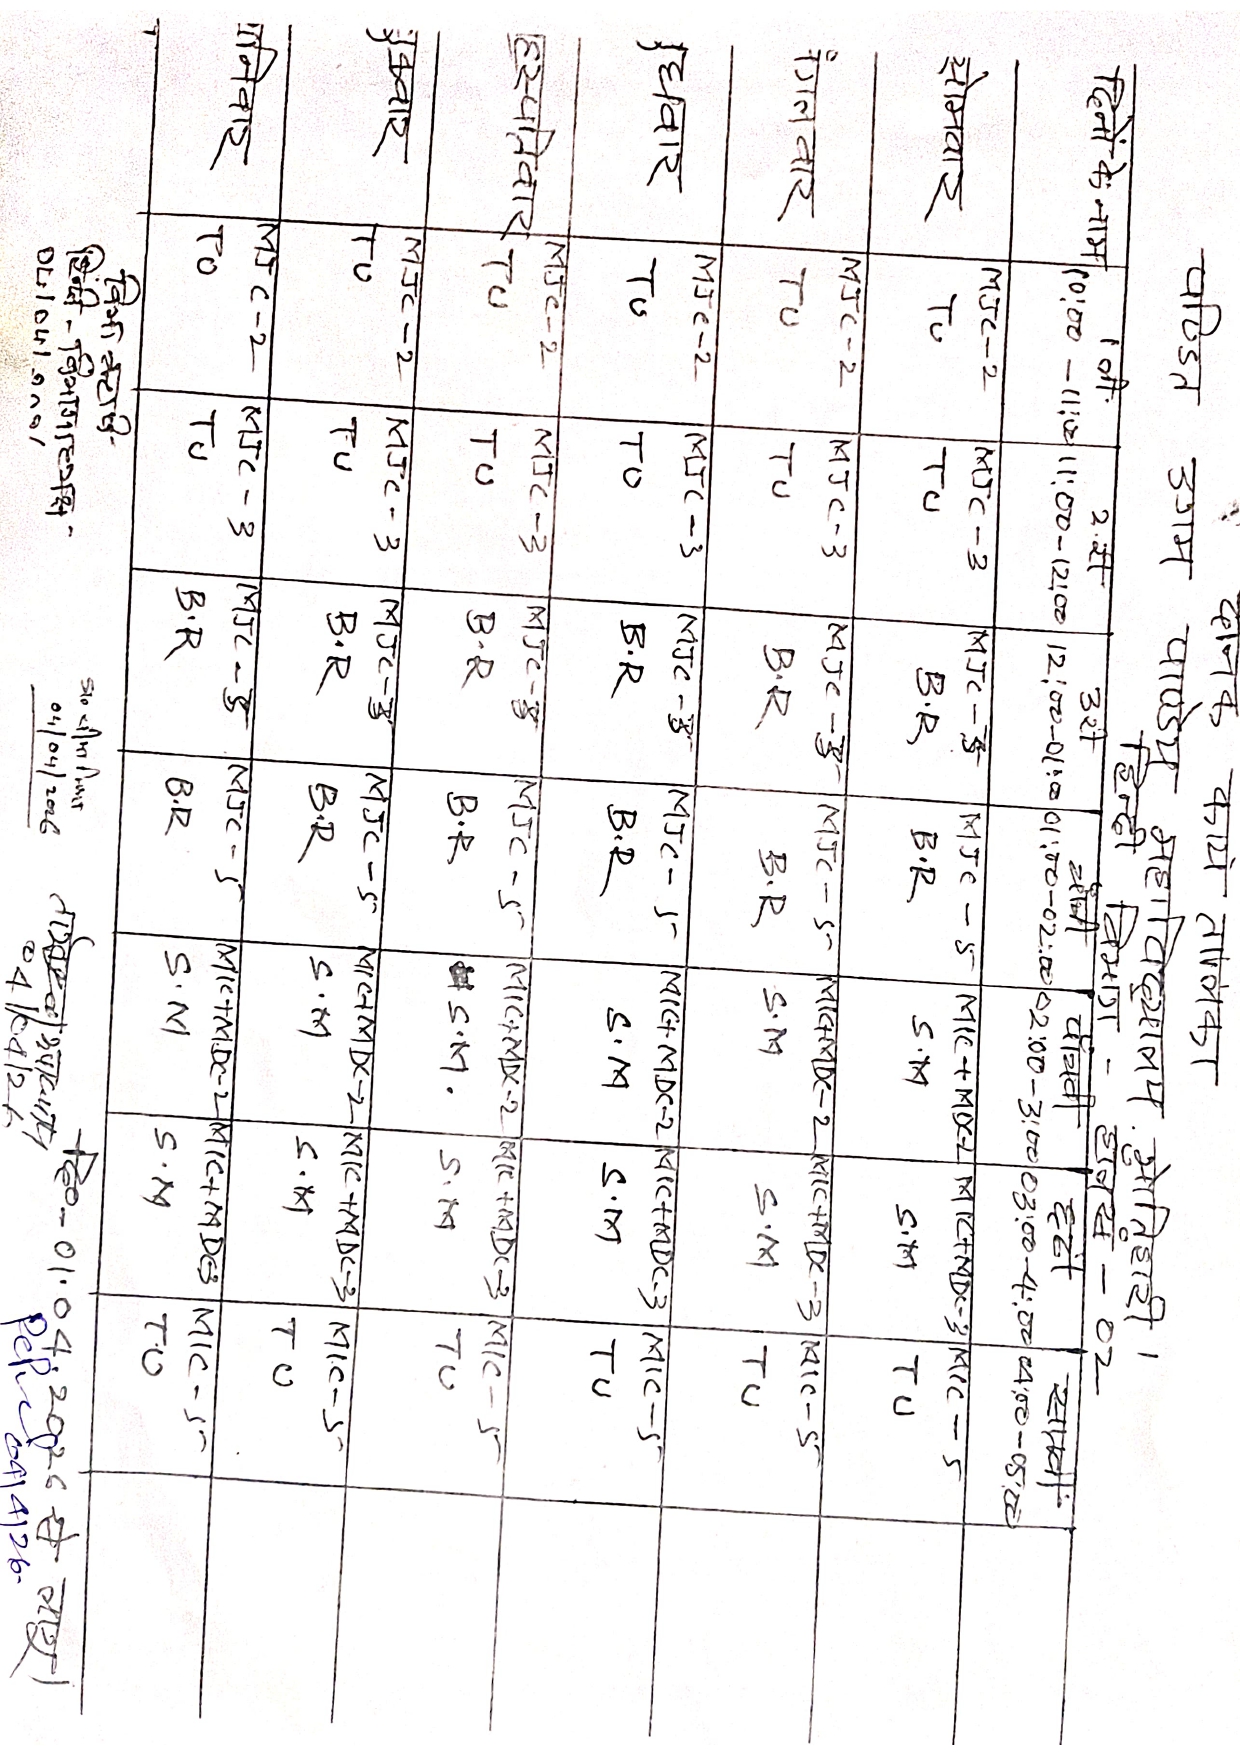 दैनिक कार्य तालिका
पंडित उगम पाण्डेय महाविद्यालय, मोतिहारी।
हिन्दी विभाग - 02
दिनों के नाम 1 ली 2 री 3 री चौथी पांचवी छठी सातवीं
10:00 - 11:00 11:00-12:00 12:00-01:00 01:00-02:00 02:00-3:00 03:00-4:00 04:00-05:00
सोमवार MJC-2 MJC-3 MJC- MJC-5 MIC+MDC-2 MIC+MDC-3 MIC-5
TU TU B.R B.R S.M S.M TU
मंगलवार MJC-2 MJC-3 MJC- MJC-5 MIC+MDC-2 MIC+MDC-3 MIC-5
TU TU B.R B.R S.M S.M TU
बुधवार MJC-2 MJC-3 MJC- MJC-5 MIC+MDC-2 MIC+MDC-3 MIC-5
TU TU B.R B.R S.M S.M TU
वृहस्पतिवार MJC-2 MJC-3 MJC- MJC-5 MIC+MDC-2 MIC+MDC-3 MIC-5
TU TU B.R B.R S.M. S.M TU
शुक्रवार MJC-2 MJC-3 MJC- MJC-5 MIC+MDC-2 MIC+MDC-3 MIC-5
TU TU B.R B.R S.M S.M TU
शनिवार MJC-2 MJC-3 MJC- MJC-5 MIC+MDC-2 MIC+MDC-3 MIC-5
TU TU B.R B.R S.M S.M TU
दि0-01.04.2026 से लागू।
04/04/2026
04/04/26
04/4/26